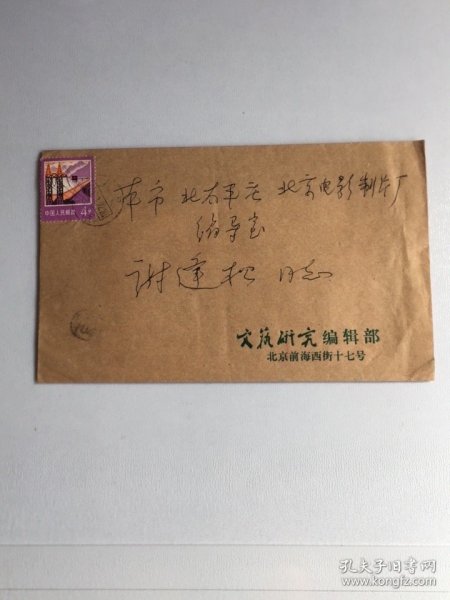 中国人民邮政 4分
本市 北太平庄 北京电影制片厂
编导室
谢逢松 同志
文艺研究编辑部
北京前海西街十七号
孔夫子旧书网
www.kongfz.com